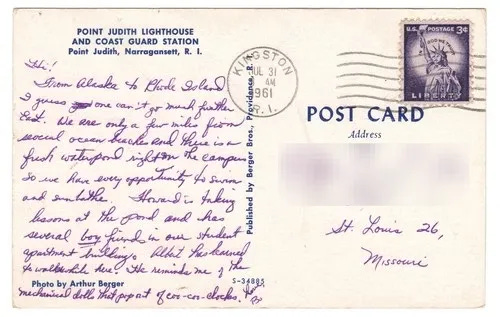 POINT JUDITH LIGHTHOUSE
AND COAST GUARD STATION
Point Judith, Narragansett, R. I.
Hi!
From Alaska to Rhode Island
I guess one can't go much further
East. We are only a few miles from
several ocean beaches and there is a
fresh water pond right on the campus
so we have every opportunity to swim
and sunbathe. Howard is taking
lessons at the pond and has
several boy friends in our student
apartment building. Albert has learned
to walk while here. He reminds me of the
mechanical dolls that pop out of coo-coo-clocks.
Photo by Arthur Berger
S-34885
Published by Berger Bros., Providence, R. I.
KINGSTON
JUL 31
AM
1961
R. I.
U.S. POSTAGE 3¢
IN GOD WE TRUST
LIBERTY
POST CARD
Address
St. Louis 26,
Missouri